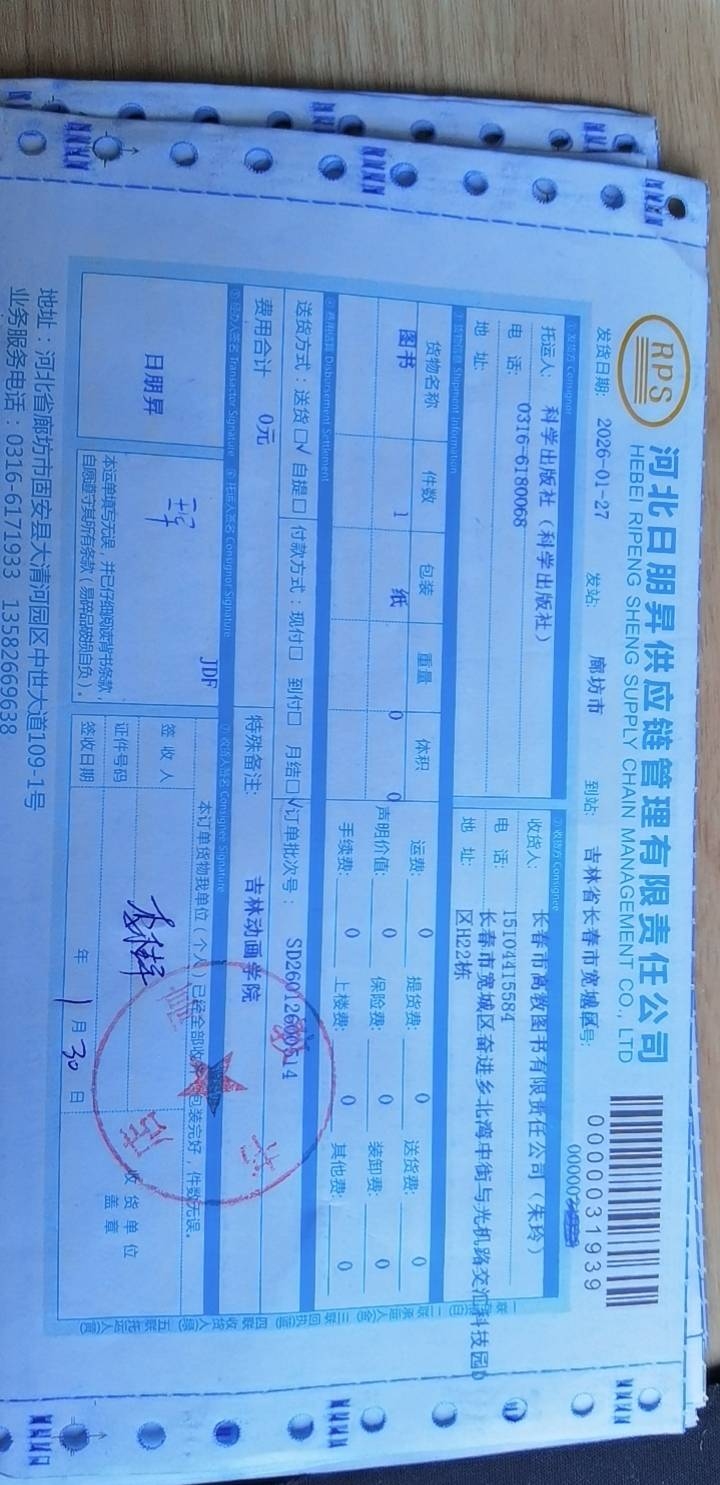 RPS
河北日朋昇供应链管理有限责任公司
HEBEI RIPENG SHENG SUPPLY CHAIN MANAGEMENT CO., LTD
0000031939
发货日期: 2026-01-27 发站: 廊坊市 到站: 吉林省长春市宽城区 号:
①发货方 Consignor
托运人: 科学出版社(科学出版社)
电 话: 0316-6180068
地 址:
②收货方 Consignee
收货人: 长春市高教图书有限责任公司(朱玲)
电 话: 15104415584
地 址: 长春市宽城区奋进乡北海中街与光机路交汇科技园D
区H22栋
③货物信息 Shipment Information
货物名称 件数 包装 重量 体积
图书 1 纸 0 0
运费: 0 提货费: 0 送货费: 0
声明价值: 0 保险费: 0 装卸费: 0
手续费: 0 上楼费: 0 其他费: 0
④费用结算 Disbursement Settlement
送货方式:送货□√ 自提□ 付款方式:现付□ 到付□ 月结□√ 订单批次号: SD260126000514
费用合计 0元 特殊备注: 吉林动画学院
⑤经办人签名 Transactor Signature ⑥托运人签名 Consignor Signature ⑦收货人签名 Consignee Signature
日朋昇
JDF
本运单填写无误,并已仔细阅读背书条款,
自愿遵守其所有条款(易碎品破损自负)。
本订单货物我单位(个人)已经全部收到,包装完好,件数无误。
签 收 人
证件号码
签收日期 年 1 月 30 日
收货单位
盖 章
地址:河北省廊坊市固安县大清河园区中世大道109-1号
业务服务电话:0316-6171933 13582669638